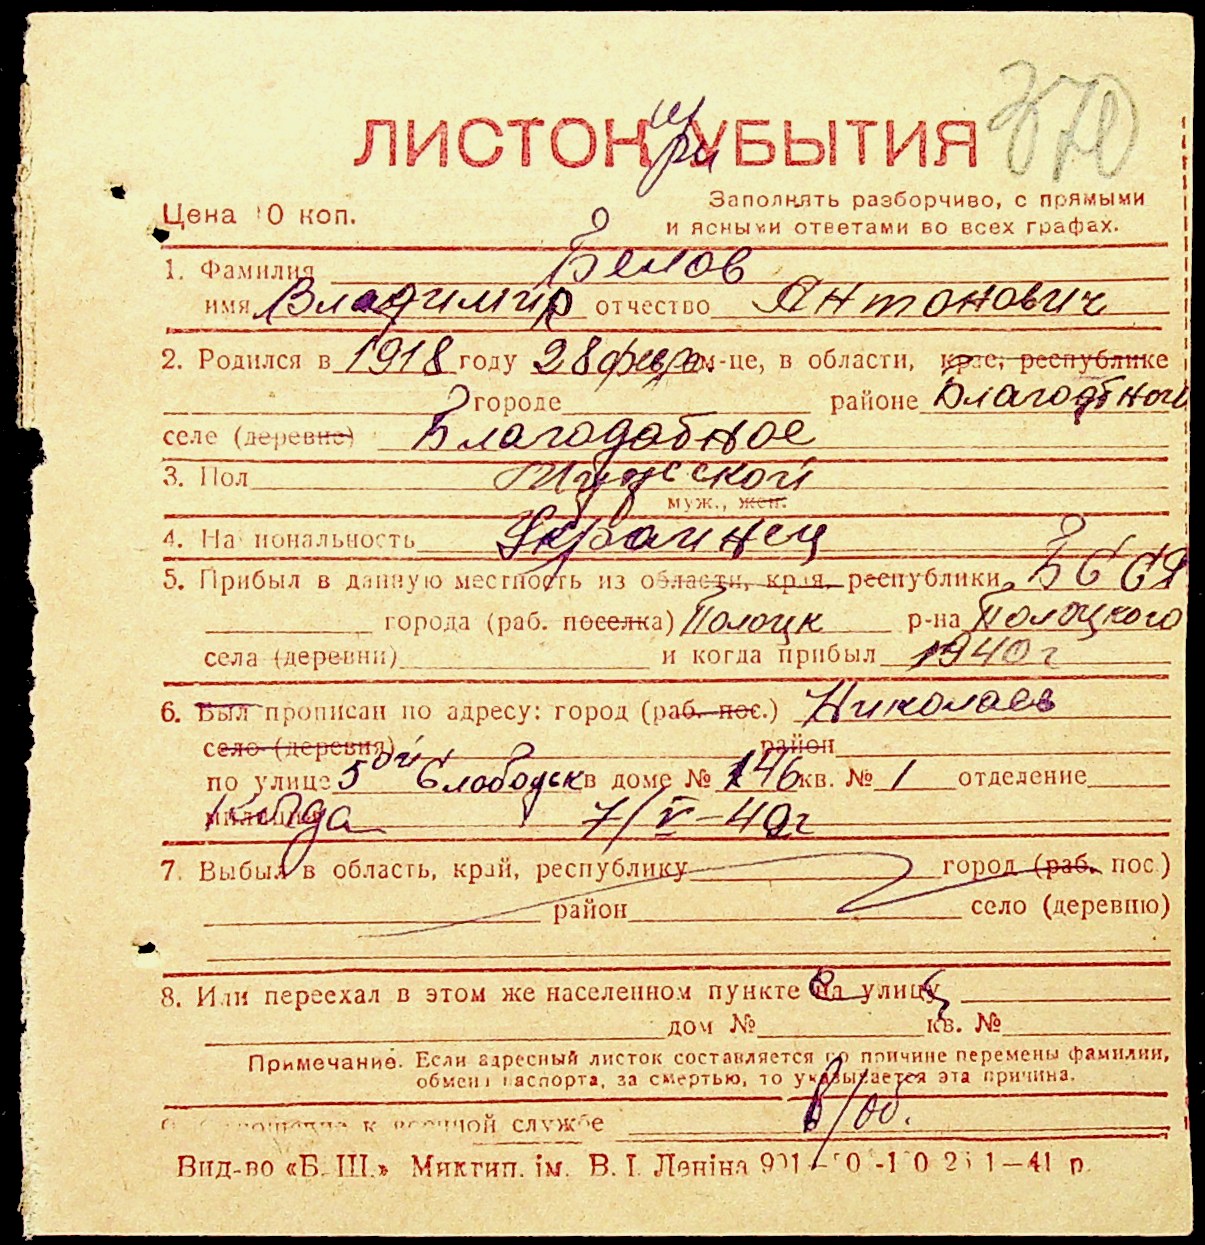 370
ЛИСТОК при УБЫТИЯ
Цена 10 коп.
Заполнять разборчиво, с прямыми
и ясными ответами во всех графах.
1. Фамилия Белов
имя Владимир отчество Антонович
2. Родился в 1918 году 28 февр. м-це, в области, крае, республике
городе районе Благодатном
селе (деревне) Благодатное
3. Пол Мужской
муж., жен.
4. Национальность Украинец
5. Прибыл в данную местность из области, края, республики БССР
города (раб. поселка) Полоцк р-на Полоцкого
села (деревни) и когда прибыл 1940 г
6. Был прописан по адресу: город (раб. пос.) Николаев
село (деревня) район
по улице 5ой Слободск в доме № 146 кв. № 1 отделение
милиции когда 7/V-40г
7. Выбыл в область, край, республику город (раб. пос.)
район село (деревню)
8. Или переехал в этом же населенном пункте на улицу
дом № кв. №
Примечание. Если адресный листок составляется по причине перемены фамилии,
обмена паспорта, за смертью, то указывается эта причина.
к военной службе в/об.
Вид-во «Б. Ш.» Миктип. ім. В. І. Леніна 1—41 р.